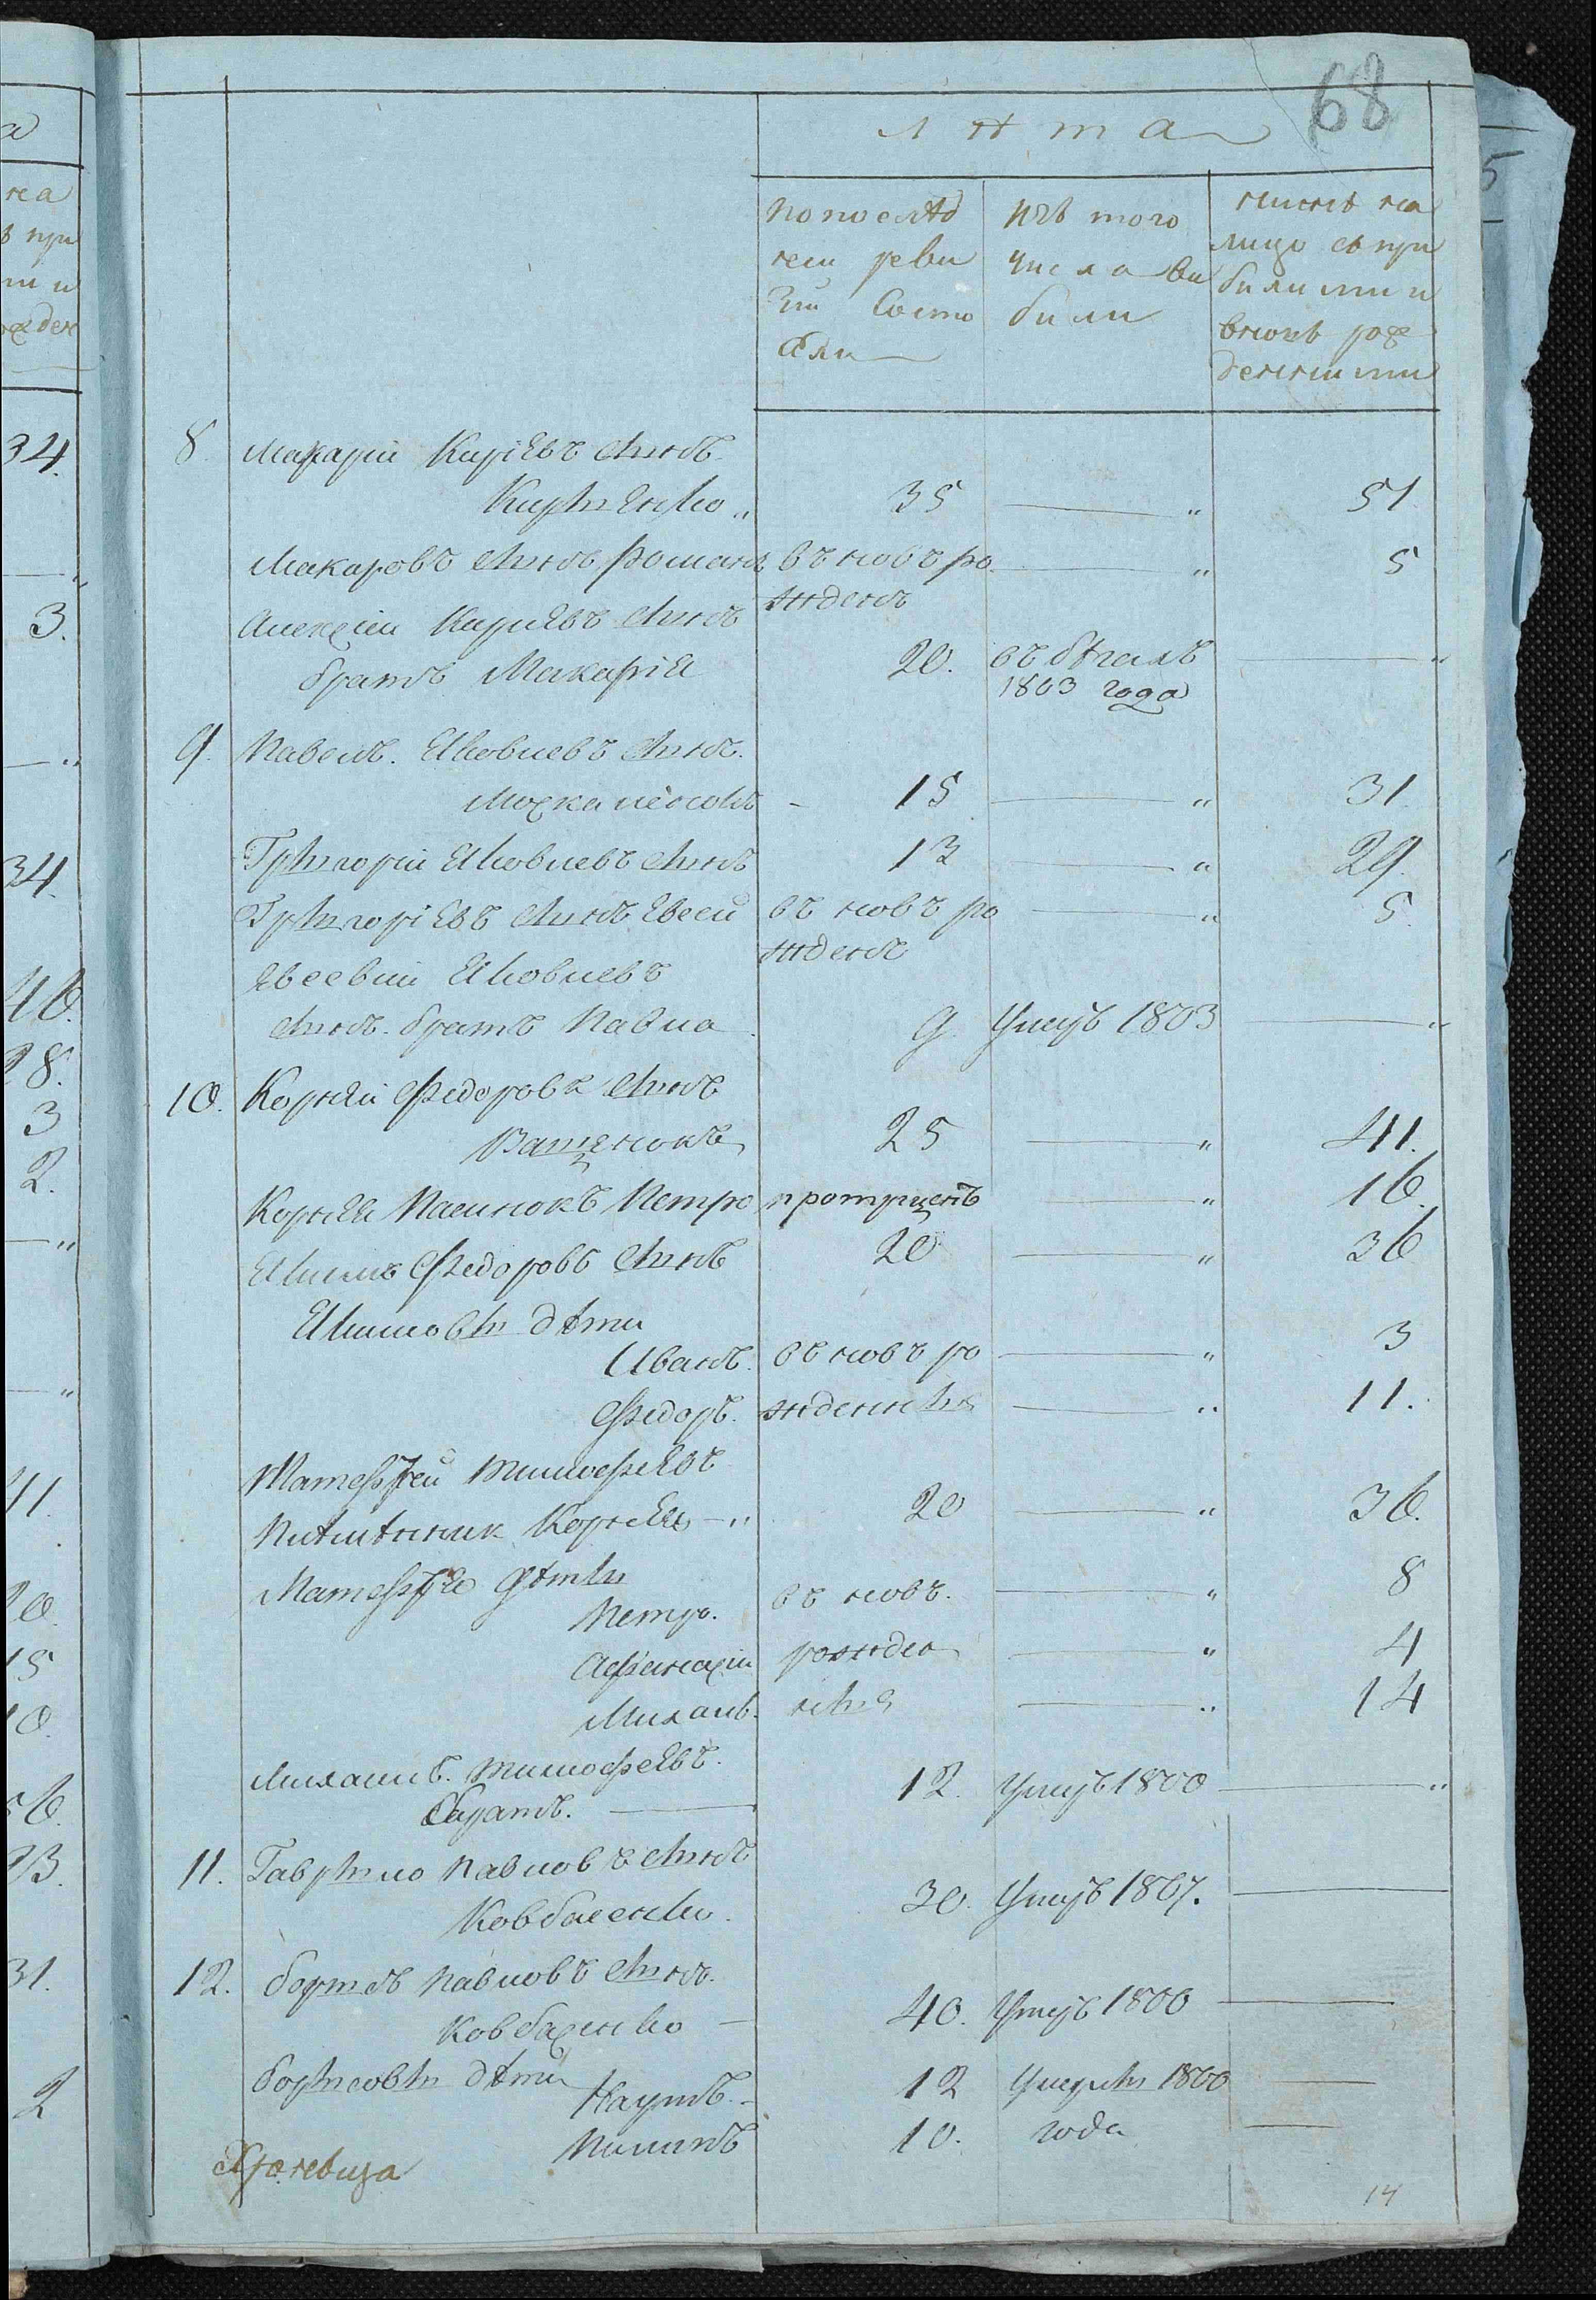 68
лѣта
попослѣд
неи реви
зіи состо
Яли
изъ того
числа ви
били
нинѣ на
лицо съ при
билими и
вновъ рож
денними
8. Макарии КиріЕвъ синъ
КириЕнко „ 35 — „ 51
Макаровъ синъ романъ въ новъ ро — „ 5
жденъ
Алексѣи КириЕвъ синъ
братъ МакаріЯ 20. въ бѣгалъ — „
1803 года
9. Павелъ. Яковлевъ синъ.
Москалѣонъ - 15 — „ 31.
Григории Яковлевъ синъ 13 — „ 29.
ГригоріЕвъ синъ Евсеи въ новъ ро — „ 5.
жденъ
Евсевии Яковлевъ
синъ. братъ Павла. 9. умеръ 1803 — „
10. Корнѣи Федоровъ синъ
Ващенокъ 25 — „ 41.
Корнѣя Пасинокъ Петро протрценъ — „ 16.
Якимъ Федоровъ синъ 20 — „ 36
Якимови дѣти
Иванъ. въ новъ ро — „ 3
Федоръ. жденни — „ 11.
Матефѣи ТимофеЕвъ
Питѣнник КорнѣЯ — „ 20 — „ 36.
МатефѣЯ Дѣти
Петро. въ новъ. — „ 8
Афанасіи рожде — „ 4
Михаил. ни — „ 14
Михаилъ. ТимофеЕвъ.
Братъ. — 12. умеръ 1800 — „
11. Гаврило Павловъ синъ
Ковбасенко. 30. умеръ 1807. —
12. борисъ Павловъ синъ.
Ковбасенко — 40. умеръ 1800 —
борисови дѣти Наумъ. - 12 умерли 1800 —
Пилипъ 10. года —
14